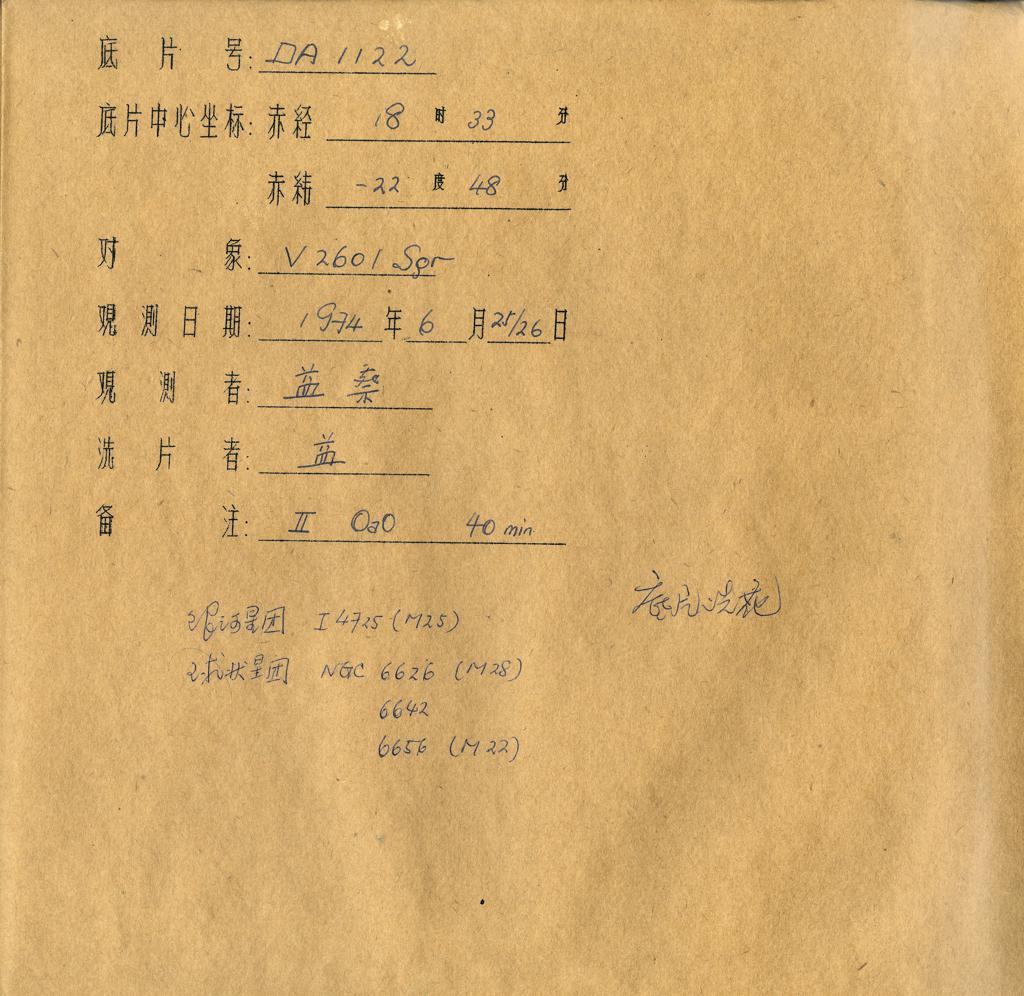 底片号: DA 1122
底片中心坐标: 赤经 18 时 33 分
赤纬 -22 度 48 分
对象: V 2601 Sgr
观测日期: 1974 年 6 月 25/26 日
观测者: 蓝 桑
洗片者: 蓝
备注: II OaO 40 min
底片洗花
银河星团 I 4725 (M25)
球状星团 NGC 6626 (M28)
6642
6656 (M22)